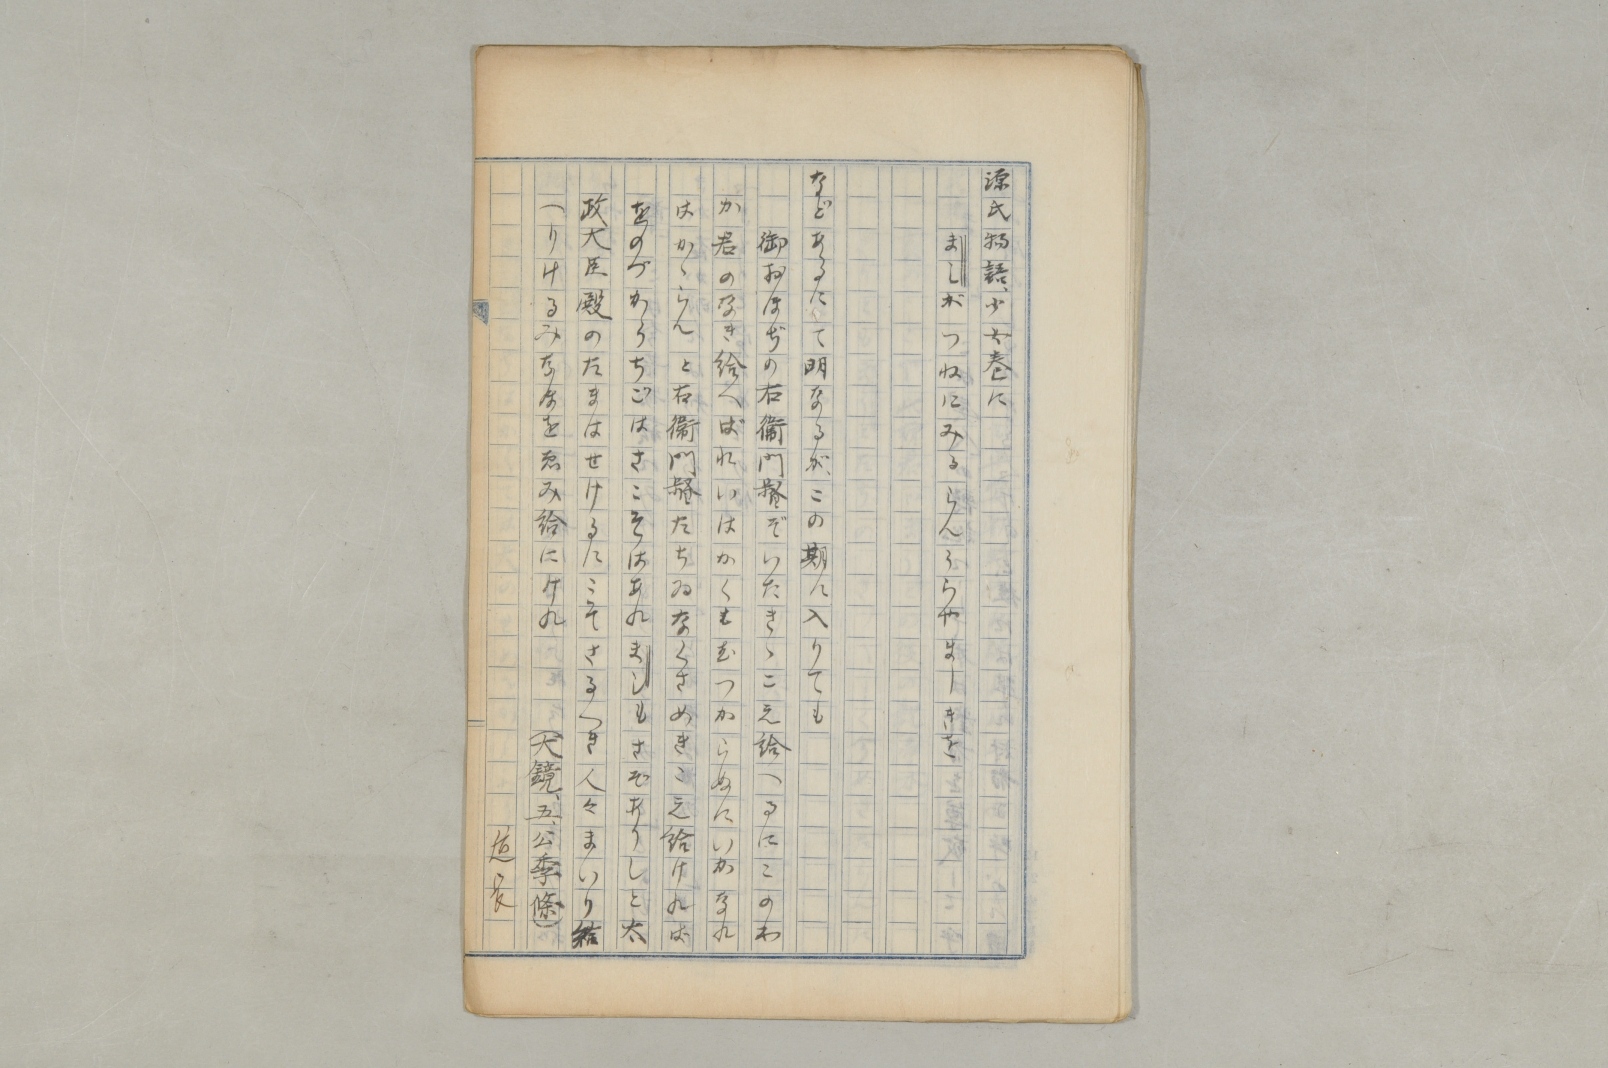 源氏物語、少女巻に
ましがつねにみるらんうらやましきを
などあるにて明なるが、この期に入りても
御おほぢの右衛門督ぞいたきゝこえ給へるにこのわ
か君のなき給へばれいはかくもむつからぬにいかなれ
はかゝらんと右衛門督たちゐなくさめきこえ給けれは
をのづからちごはさこそはあれましもさぞありしと太
政大臣殿のたまはせけるにこそさるへき人々まいり給
へりけるみなほをゑみ給にけれ
（大鏡、五、公季條）
道長